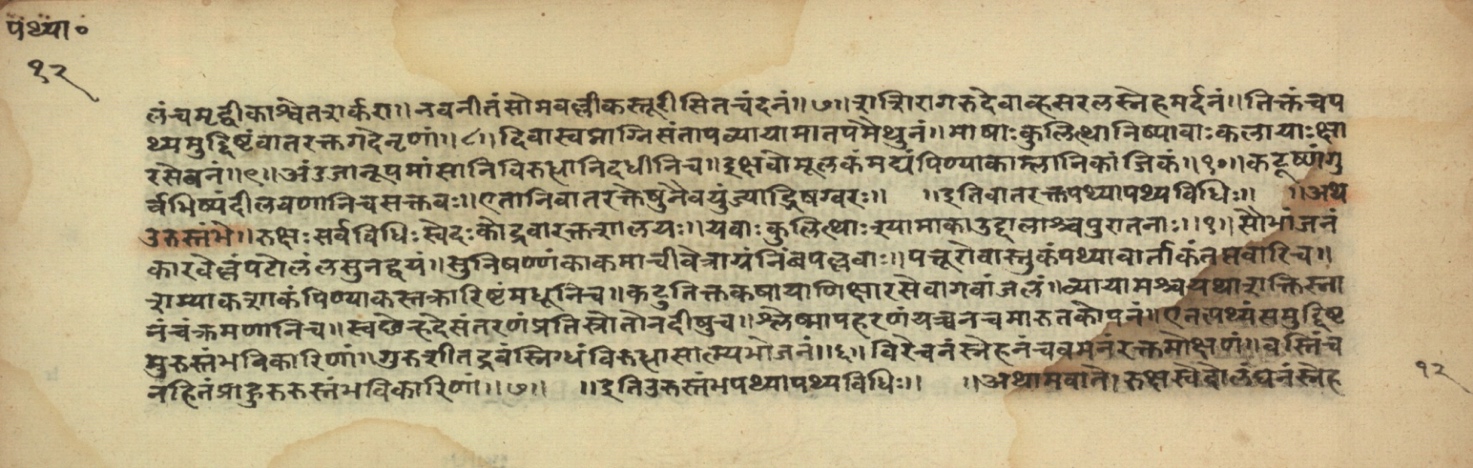 पंथ्या०
१२
लंचमृद्वीकाश्वेतशर्करा॥नवनीतंसोमवल्लीकस्तूरीसितचंदनं॥७॥शिंशिपागरुदेवाव्हसरलस्नेहमर्दनं॥तिक्तंचप
थ्यमुद्दिष्टंवातरक्तगदेनृणां॥८॥दिवास्वप्नाग्निसंतापव्यायामातपमैथुनं॥माषाःकुलित्थानिष्पावाःकलायाःक्षा
रसेवनं॥९॥अंडजानूपमांसानिविरुधानिदधीनिच॥इक्षवोमूलकंमद्यंपिण्याकाम्लानिकांजिकं॥१०॥कटूष्णंगु
र्वभिष्यंदीलवणानिचसक्तवः॥एतानिवातरक्तेषुनैवयुंज्याद्भिषग्वरः॥ ॥इतिवातरक्तपथ्यापथ्यविधिः॥ ॥अथ
उरुस्तंभे॥रुक्षःसर्वविधिःस्वेदःकोद्रवारक्तशालयः॥यवाःकुलित्थाःश्यामाकाउद्दालाश्चपुरातनाः॥१॥सौभांजनं
कारवेल्लंपटोलंलसुनद्वयं॥सुनिषण्णंकाकमाचीवेत्राग्रंनिंबपल्लवाः॥पत्तूरोवास्तुकंपथ्यावार्ताकंतप्तवारिच॥
शम्याकशाकंपिण्याकस्तक्रारिष्टंमधूनिच॥कटुतिक्तकषायाणिक्षारसेवागवांजलं॥व्यायामश्चयथाशक्तिस्ना
नंचंक्रमणानिच॥स्वछेह्रदेसंतरणंप्रतिस्रोतोनदीषुच॥श्लेष्मापहरणंयच्चनचमारुतकोपनं॥एतत्पथ्यंसमुद्दिष्ट
मुरुस्तंभविकारिणां॥गुरुशीतद्रवंस्निग्धंविरुधासात्म्यभोजनं॥६॥विरेचनंस्नेहनंचवमनंरक्तमोक्षणं॥वस्तिंच
नहितंप्राहुरुरुस्तंभविकारिणां॥७॥ ॥इतिउरुस्तंभपथ्यापथ्यविधिः॥ ॥अथामवाते॥रुक्षस्वेदोलंघनंस्नेह
१२